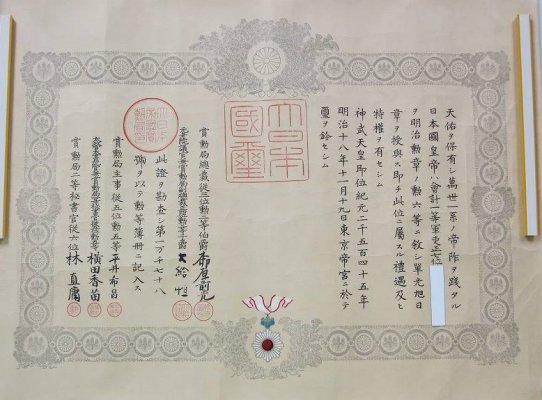 天佑ヲ保有シ萬世一系ノ帝祚ヲ踐タル
日本國皇帝ハ會計一等軍吏正七位
ヲ明治勲章ノ勲六等ニ敘シ單光旭日
章ヲ授與ス即チ此位ニ屬スル禮遇及ヒ
特權ヲ有セシム
神武天皇即位紀元二千五百四十五年
明治十八年十一月十九日東京帝宮ニ於テ
璽ヲ鈐セシム
大日本國璽
賞勲局總裁從三位勲二等伯爵
此證ヲ勘査シ第一万千七十八
號ヲ以テ勲等簿册ニ記入ス
賞勲局主事從五位勲五等平井希昌
横田香苗
賞勲局二等秘書官從六位林直庸